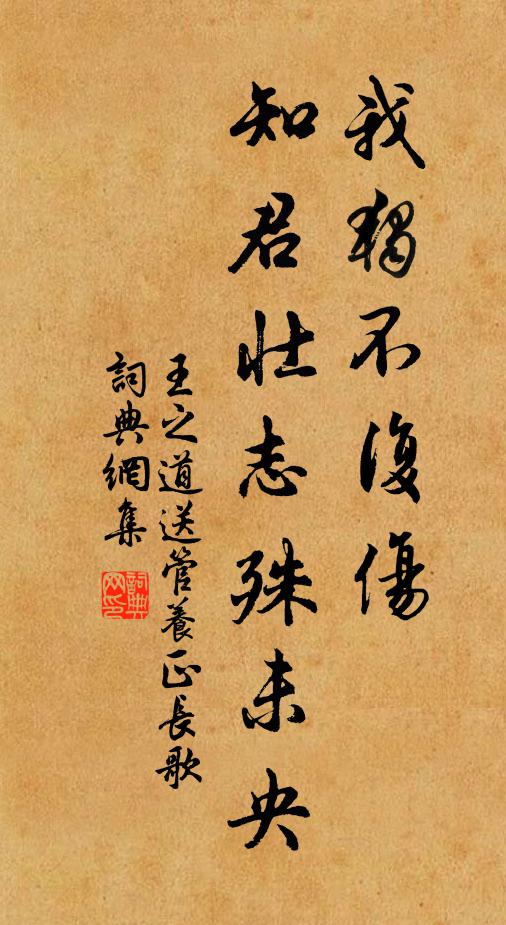 我獨不復傷
知君壯志殊未央
王之道送管養正長歌
詞典網集
詞典網印